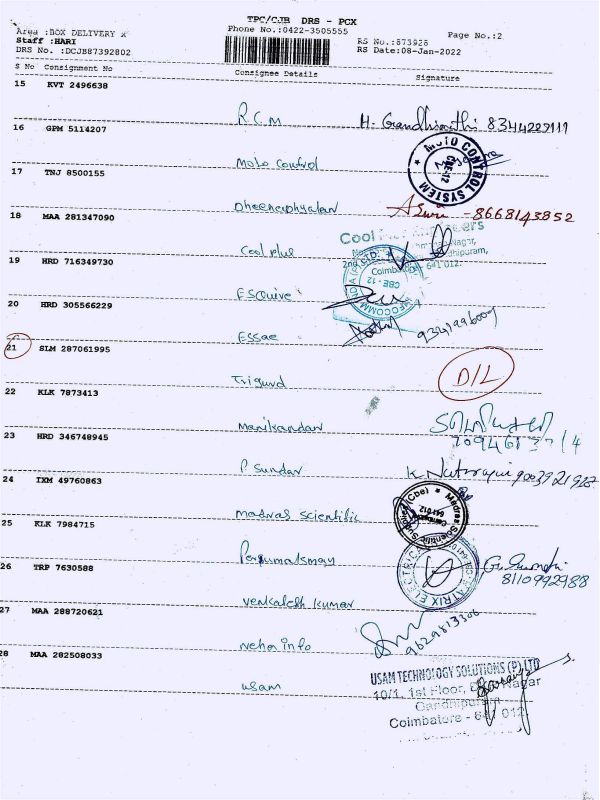 TPC/CJB DRS - PCX
Area :BOX DELIVERY X
Phone No.:0422-3505555
Page No.:2
Staff :HARI
RS No.:873928
DRS No. :DCJB87392802
RS Date:08-Jan-2022
S No Consignment No Consignee Details Signature
15 KVT 2496638
R.C.M H. Gandhimathi 8344229119
16 GPM 5114207
Moto Control
MOTO CONTROL SYSTEM
CBE-12
17 TNJ 8500155
Dheenadhyalan -8668143852
18 MAA 281347090
Cool plus
Cool
Coimbatore - 641 012.
19 HRD 716349730
Esquive
CBE - 12
20 HRD 305566229
Essae
21 SLM 287061995
Trigurd D/L
22 KLK 7873413
Manikandan
23 HRD 346748945
P. Sundar K. Natarajan 9003921927
24 IXM 49760863
madras scientific
Madras Scientific Supplier (Cbe)
641 012
25 KLK 7984715
Perumalsmay
26 TRP 7630588
8110992988
venkalesh kumar
27 MAA 288720621
9629813306
neha info
28 MAA 282508033
usam
USAM TECHNOLOGY SOLUTIONS (P) LTD
10/1, 1st Floor, Nagar
Gandhipuram
Coimbatore - 641 012